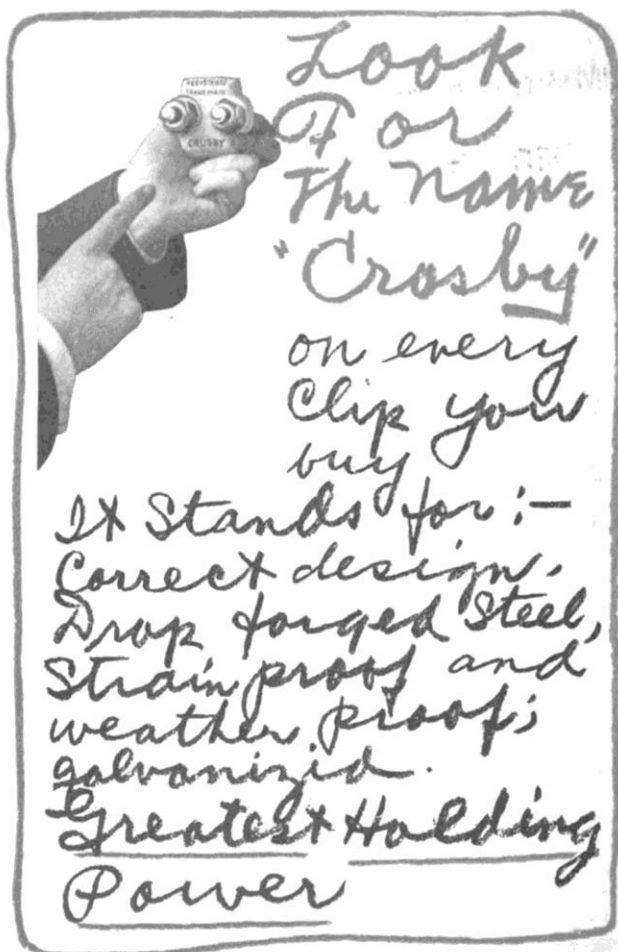 REGISTERED
TRADE MARK
CROSBY
Look
For
The Name
"Crosby"
on every
Clip you
buy
It Stands for:—
Correct design.
Drop forged Steel,
Strain proof and
weather proof;
galvanizid.
Greatest Holding
Power